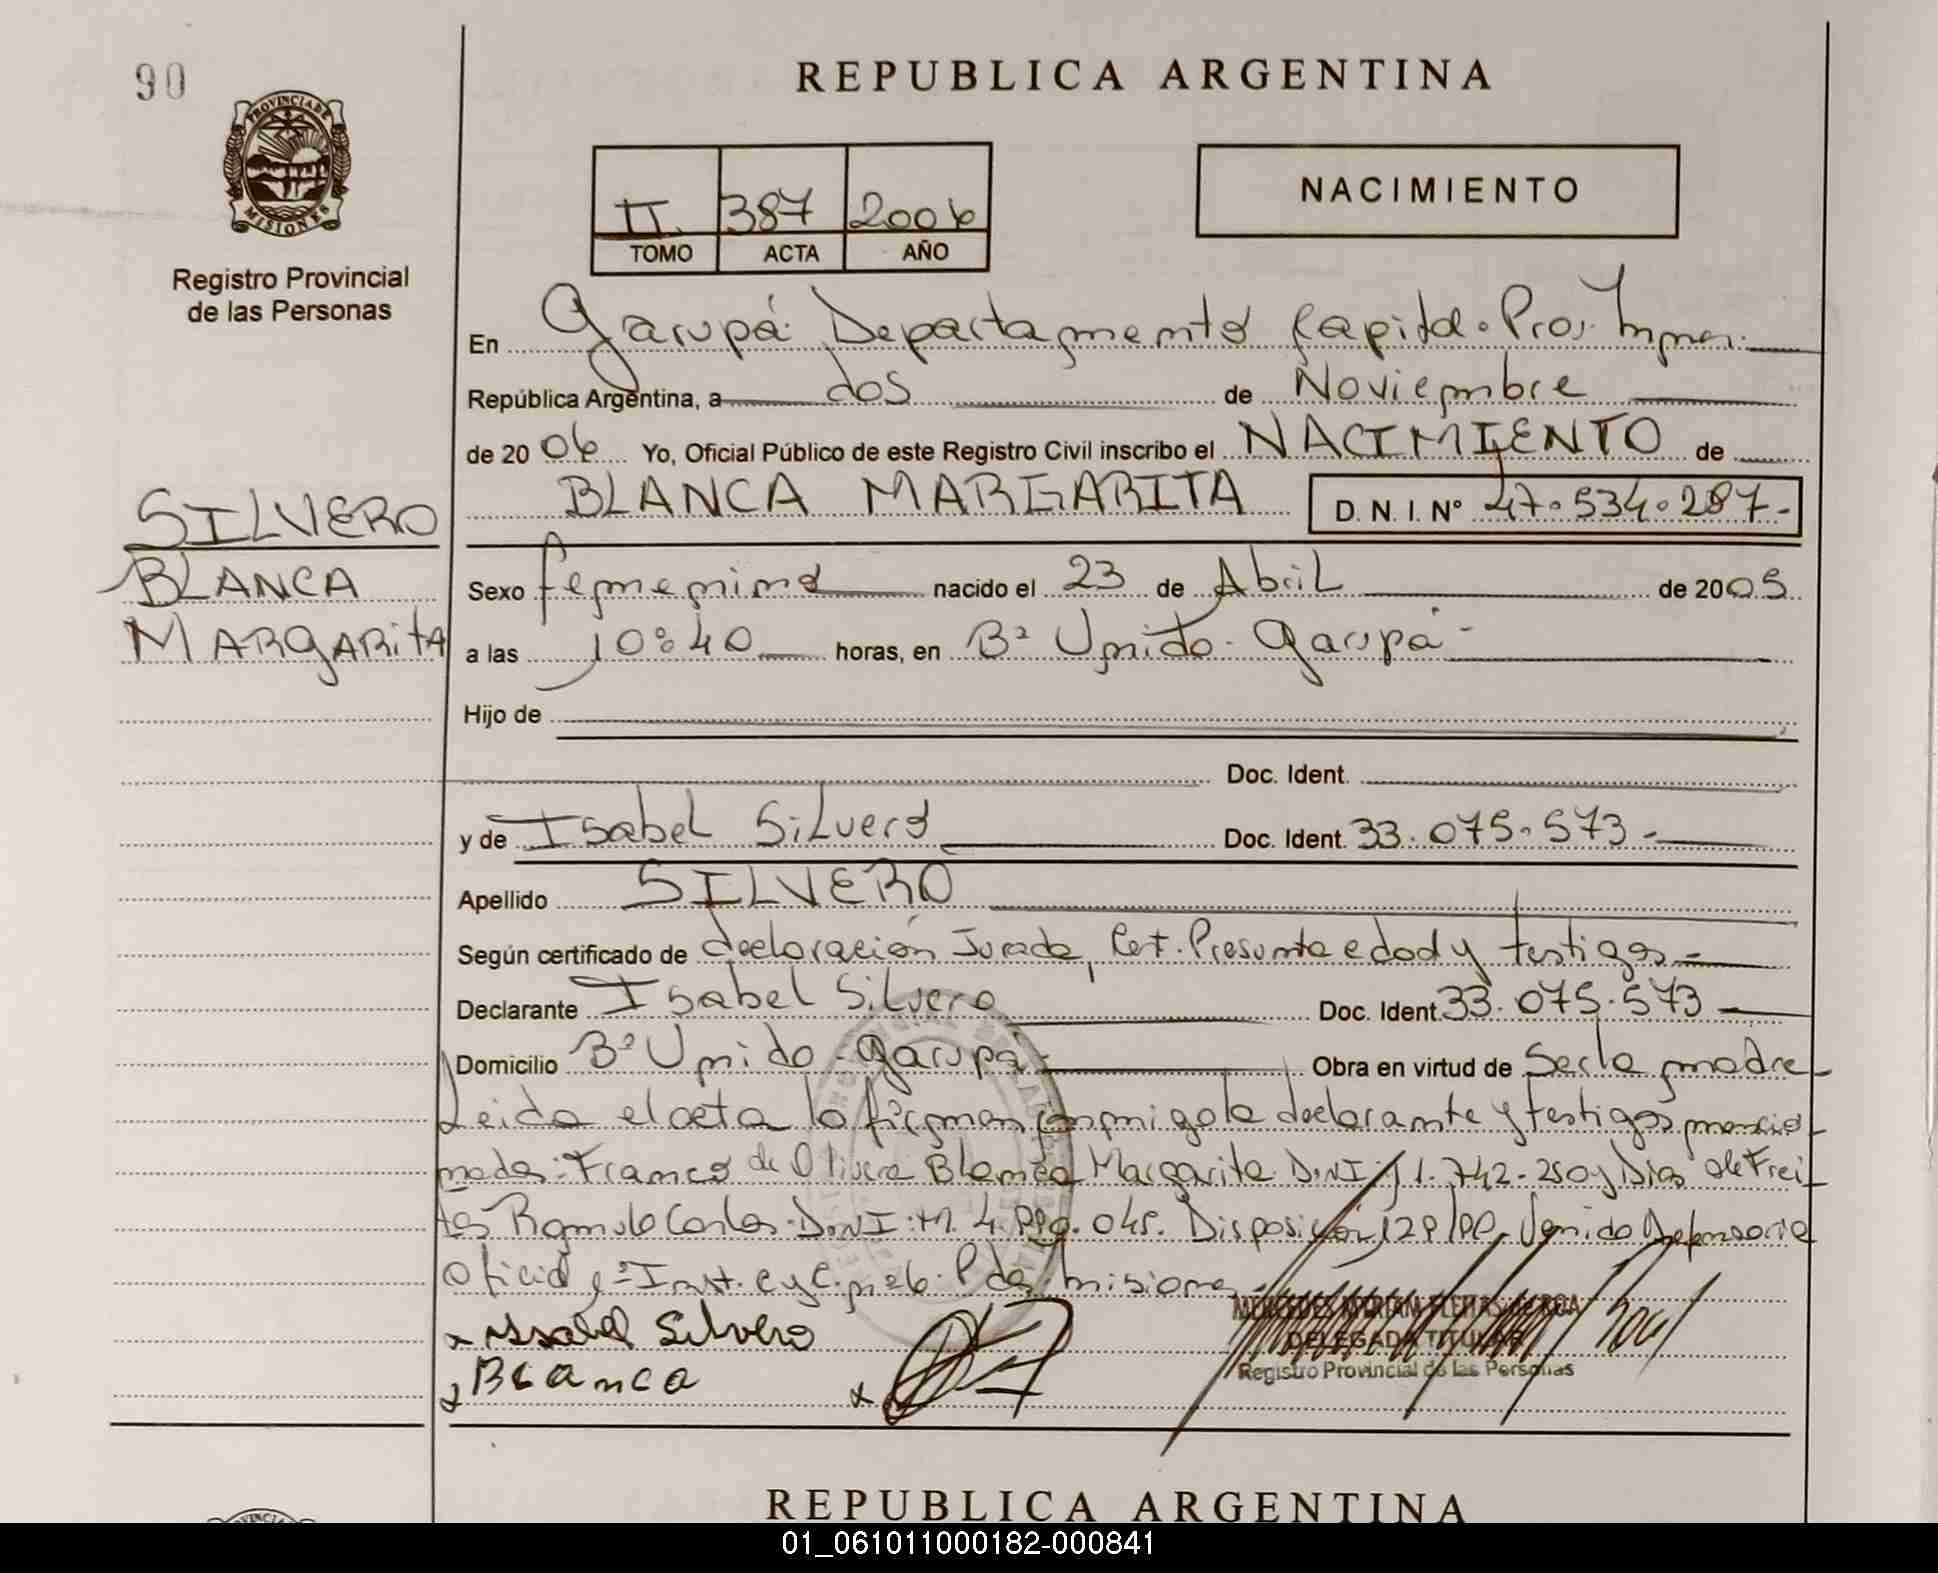 90
REPUBLICA ARGENTINA
PROVINCIA DE
MISIONES
Registro Provincial
de las Personas
NACIMIENTO
II. 387 2006
TOMO ACTA AÑO
En Garupá Departamento Capital
República Argentina, a dos de Noviembre
de 2006 Yo, Oficial Público de este Registro Civil inscribo el NACIMIENTO de
BLANCA MARGARITA D.N.I. Nº 47.534.287.-
SILVERO
BLANCA
MARGARITA
Sexo femenino nacido el 23 de Abril de 2005
a las 10:40 horas, en Bº Unido - Garupá -
Hijo de
Doc. Ident.
y de Isabel Silvero Doc. Ident. 33.075.573.-
Apellido SILVERO
Según certificado de declaración Jurada, Cert. Presunta edad y testigos -
Declarante Isabel Silvero Doc. Ident. 33.075.573
Domicilio Bº Unido - Garupá - Obra en virtud de Ser la madre
Leida el acta la firman conmigo la declarante y testigos mencio
nados: Franco de Olivera Blanca Margarita D.N.I. 742.250 y Dias de Frei
tas Romulo Carlos D.N.I: M. 4. 045. Disposición Venido Defensoria
Oficial Inst. Misiones
x Isabel Silvero
x Blanca
x
MERCEDES MIRIAM FLEITAS de ROA
DELEGADA TITULAR
Registro Provincial de las Personas
REPUBLICA ARGENTINA
01_061011000182-000841